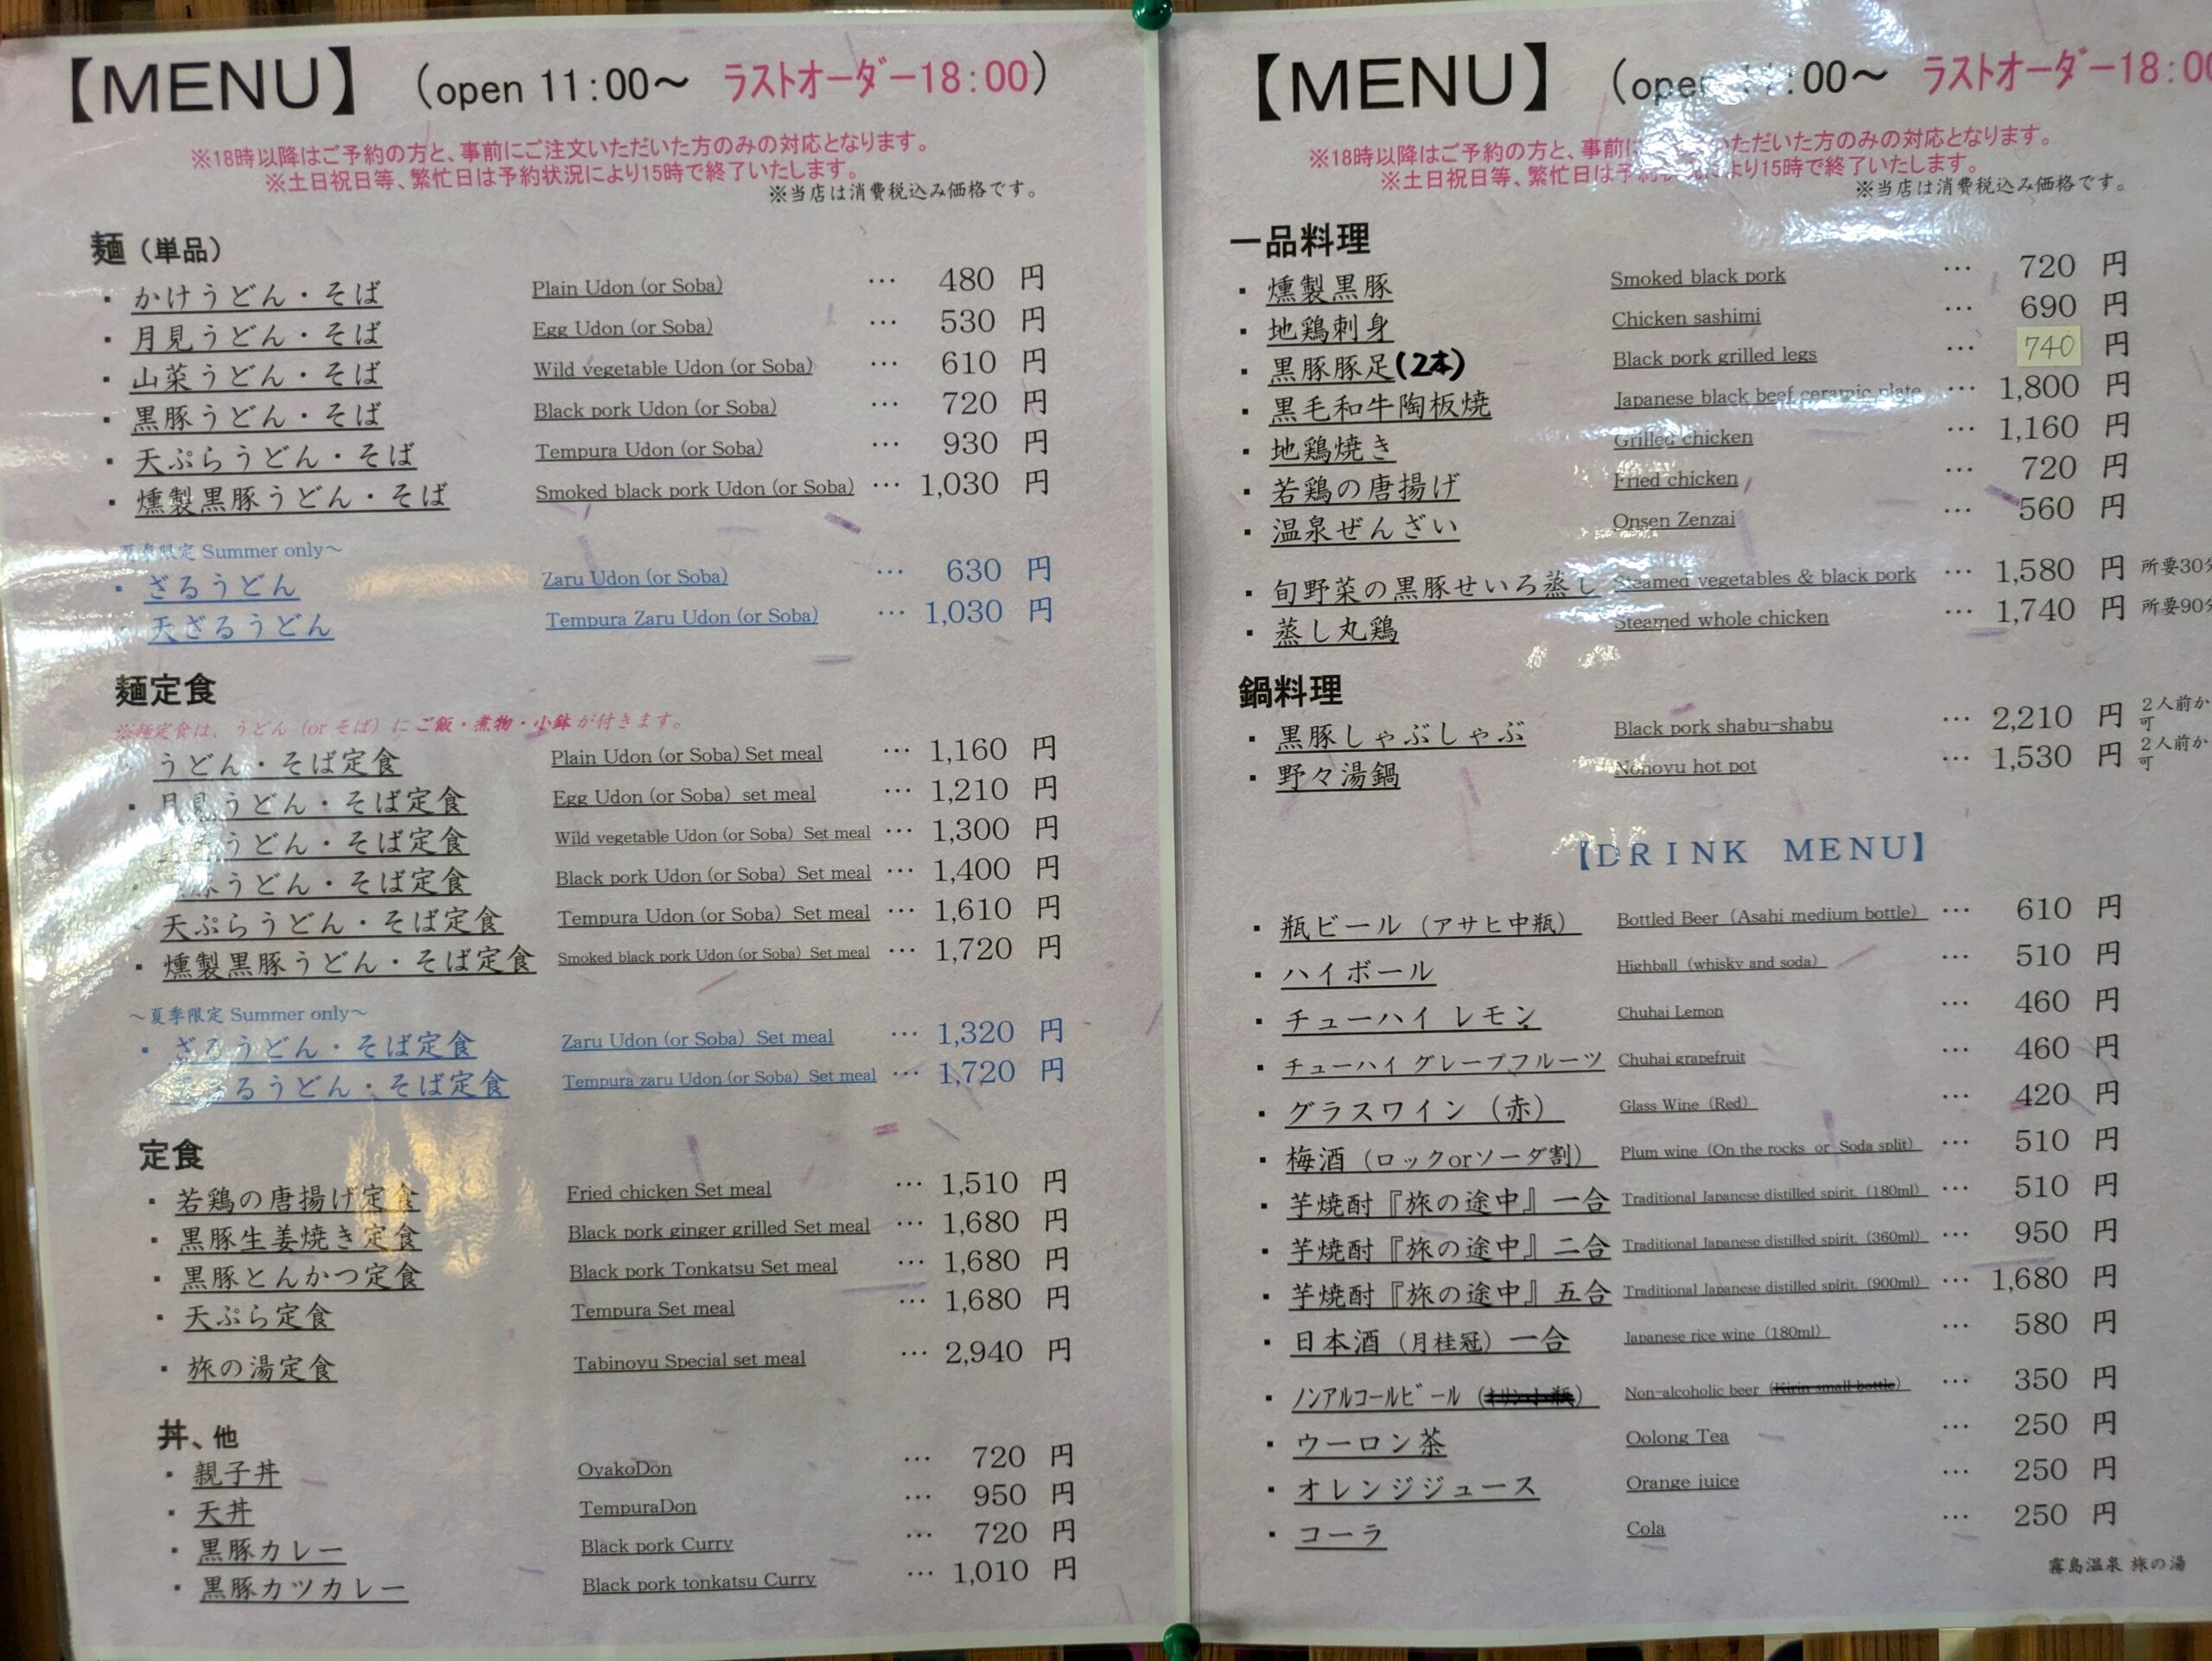 【MENU】 (open 11:00～ ラストオーダー18:00)
※18時以降はご予約の方と、事前にご注文いただいた方のみの対応となります。
※土日祝日等、繁忙日は予約状況により15時で終了いたします。
※当店は消費税込み価格です。
麺（単品）
・かけうどん・そば Plain Udon (or Soba) … 480 円
・月見うどん・そば Egg Udon (or Soba) … 530 円
・山菜うどん・そば Wild vegetable Udon (or Soba) … 610 円
・黒豚うどん・そば Black pork Udon (or Soba) … 720 円
・天ぷらうどん・そば Tempura Udon (or Soba) … 930 円
・燻製黒豚うどん・そば Smoked black pork Udon (or Soba) … 1,030 円
夏季限定 Summer only～
・ざるうどん Zaru Udon (or Soba) … 630 円
天ざるうどん Tempura Zaru Udon (or Soba) … 1,030 円
麺定食
※麺定食は、うどん（or そば）にご飯・煮物・小鉢が付きます。
うどん・そば定食 Plain Udon (or Soba) Set meal … 1,160 円
・月見うどん・そば定食 Egg Udon (or Soba) set meal … 1,210 円
うどん・そば定食 Wild vegetable Udon (or Soba) Set meal … 1,300 円
うどん・そば定食 Black pork Udon (or Soba) Set meal … 1,400 円
天ぷらうどん・そば定食 Tempura Udon (or Soba) Set meal … 1,610 円
・燻製黒豚うどん・そば定食 Smoked black pork Udon (or Soba) Set meal … 1,720 円
～夏季限定 Summer only～
・ざるうどん・そば定食 Zaru Udon (or Soba) Set meal … 1,320 円
るうどん・そば定食 Tempura zaru Udon (or Soba) Set meal … 1,720 円
定食
・若鶏の唐揚げ定食 Fried chicken Set meal … 1,510 円
・黒豚生姜焼き定食 Black pork ginger grilled Set meal … 1,680 円
・黒豚とんかつ定食 Black pork Tonkatsu Set meal … 1,680 円
・天ぷら定食 Tempura Set meal … 1,680 円
・旅の湯定食 Tabinoyu Special set meal … 2,940 円
丼、他
・親子丼 OyakoDon … 720 円
・天丼 TempuraDon … 950 円
・黒豚カレー Black pork Curry … 720 円
・黒豚カツカレー Black pork tonkatsu Curry … 1,010 円
【MENU】 (open 11:00～ ラストオーダー18:00
※18時以降はご予約の方と、事前に いただいた方のみの対応となります。
※土日祝日等、繁忙日は予約状況により15時で終了いたします。
※当店は消費税込み価格です。
一品料理
・燻製黒豚 Smoked black pork … 720 円
・地鶏刺身 Chicken sashimi … 690 円
・黒豚豚足(2本) Black pork grilled legs … 740 円
・黒毛和牛陶板焼 Japanese black beef ceramic plate … 1,800 円
・地鶏焼き Grilled chicken … 1,160 円
・若鶏の唐揚げ Fried chicken … 720 円
・温泉ぜんざい Onsen Zenzai … 560 円
・旬野菜の黒豚せいろ蒸し Steamed vegetables & black pork … 1,580 円 所要30分
・蒸し丸鶏 Steamed whole chicken … 1,740 円 所要90分
鍋料理
・黒豚しゃぶしゃぶ Black pork shabu-shabu … 2,210 円 2人前か
可
・野々湯鍋 Nonoyu hot pot … 1,530 円 2人前か
可
【DRINK MENU】
・瓶ビール（アサヒ中瓶） Bottled Beer (Asahi medium bottle) … 610 円
・ハイボール Highball (whisky and soda) … 510 円
・チューハイ レモン Chuhai Lemon … 460 円
・チューハイ グレープフルーツ Chuhai grapefruit … 460 円
・グラスワイン（赤） Glass Wine (Red) … 420 円
・梅酒（ロックorソーダ割） Plum wine (On the rocks or Soda split) … 510 円
・芋焼酎『旅の途中』一合 Traditional Japanese distilled spirit. (180ml) … 510 円
・芋焼酎『旅の途中』二合 Traditional Japanese distilled spirit. (360ml) … 950 円
・芋焼酎『旅の途中』五合 Traditional Japanese distilled spirit. (900ml) … 1,680 円
・日本酒（月桂冠）一合 Japanese rice wine (180ml) … 580 円
・ノンアルコールビール（キリン小瓶） Non-alcoholic beer (Kirin small bottle) … 350 円
・ウーロン茶 Oolong Tea … 250 円
・オレンジジュース Orange juice … 250 円
・コーラ Cola … 250 円
霧島温泉 旅の湯